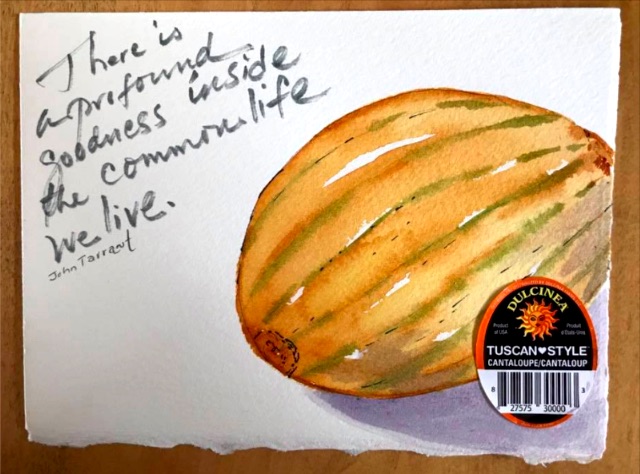 There is
a profound
goodness inside
the common life
we live.
John Tarrant
DULCINEA
Product
of USA
Product
d'Etats-Unis
TUSCAN♥STYLE
CANTALOUPE/CANTALOUP
8 27575 30000 3